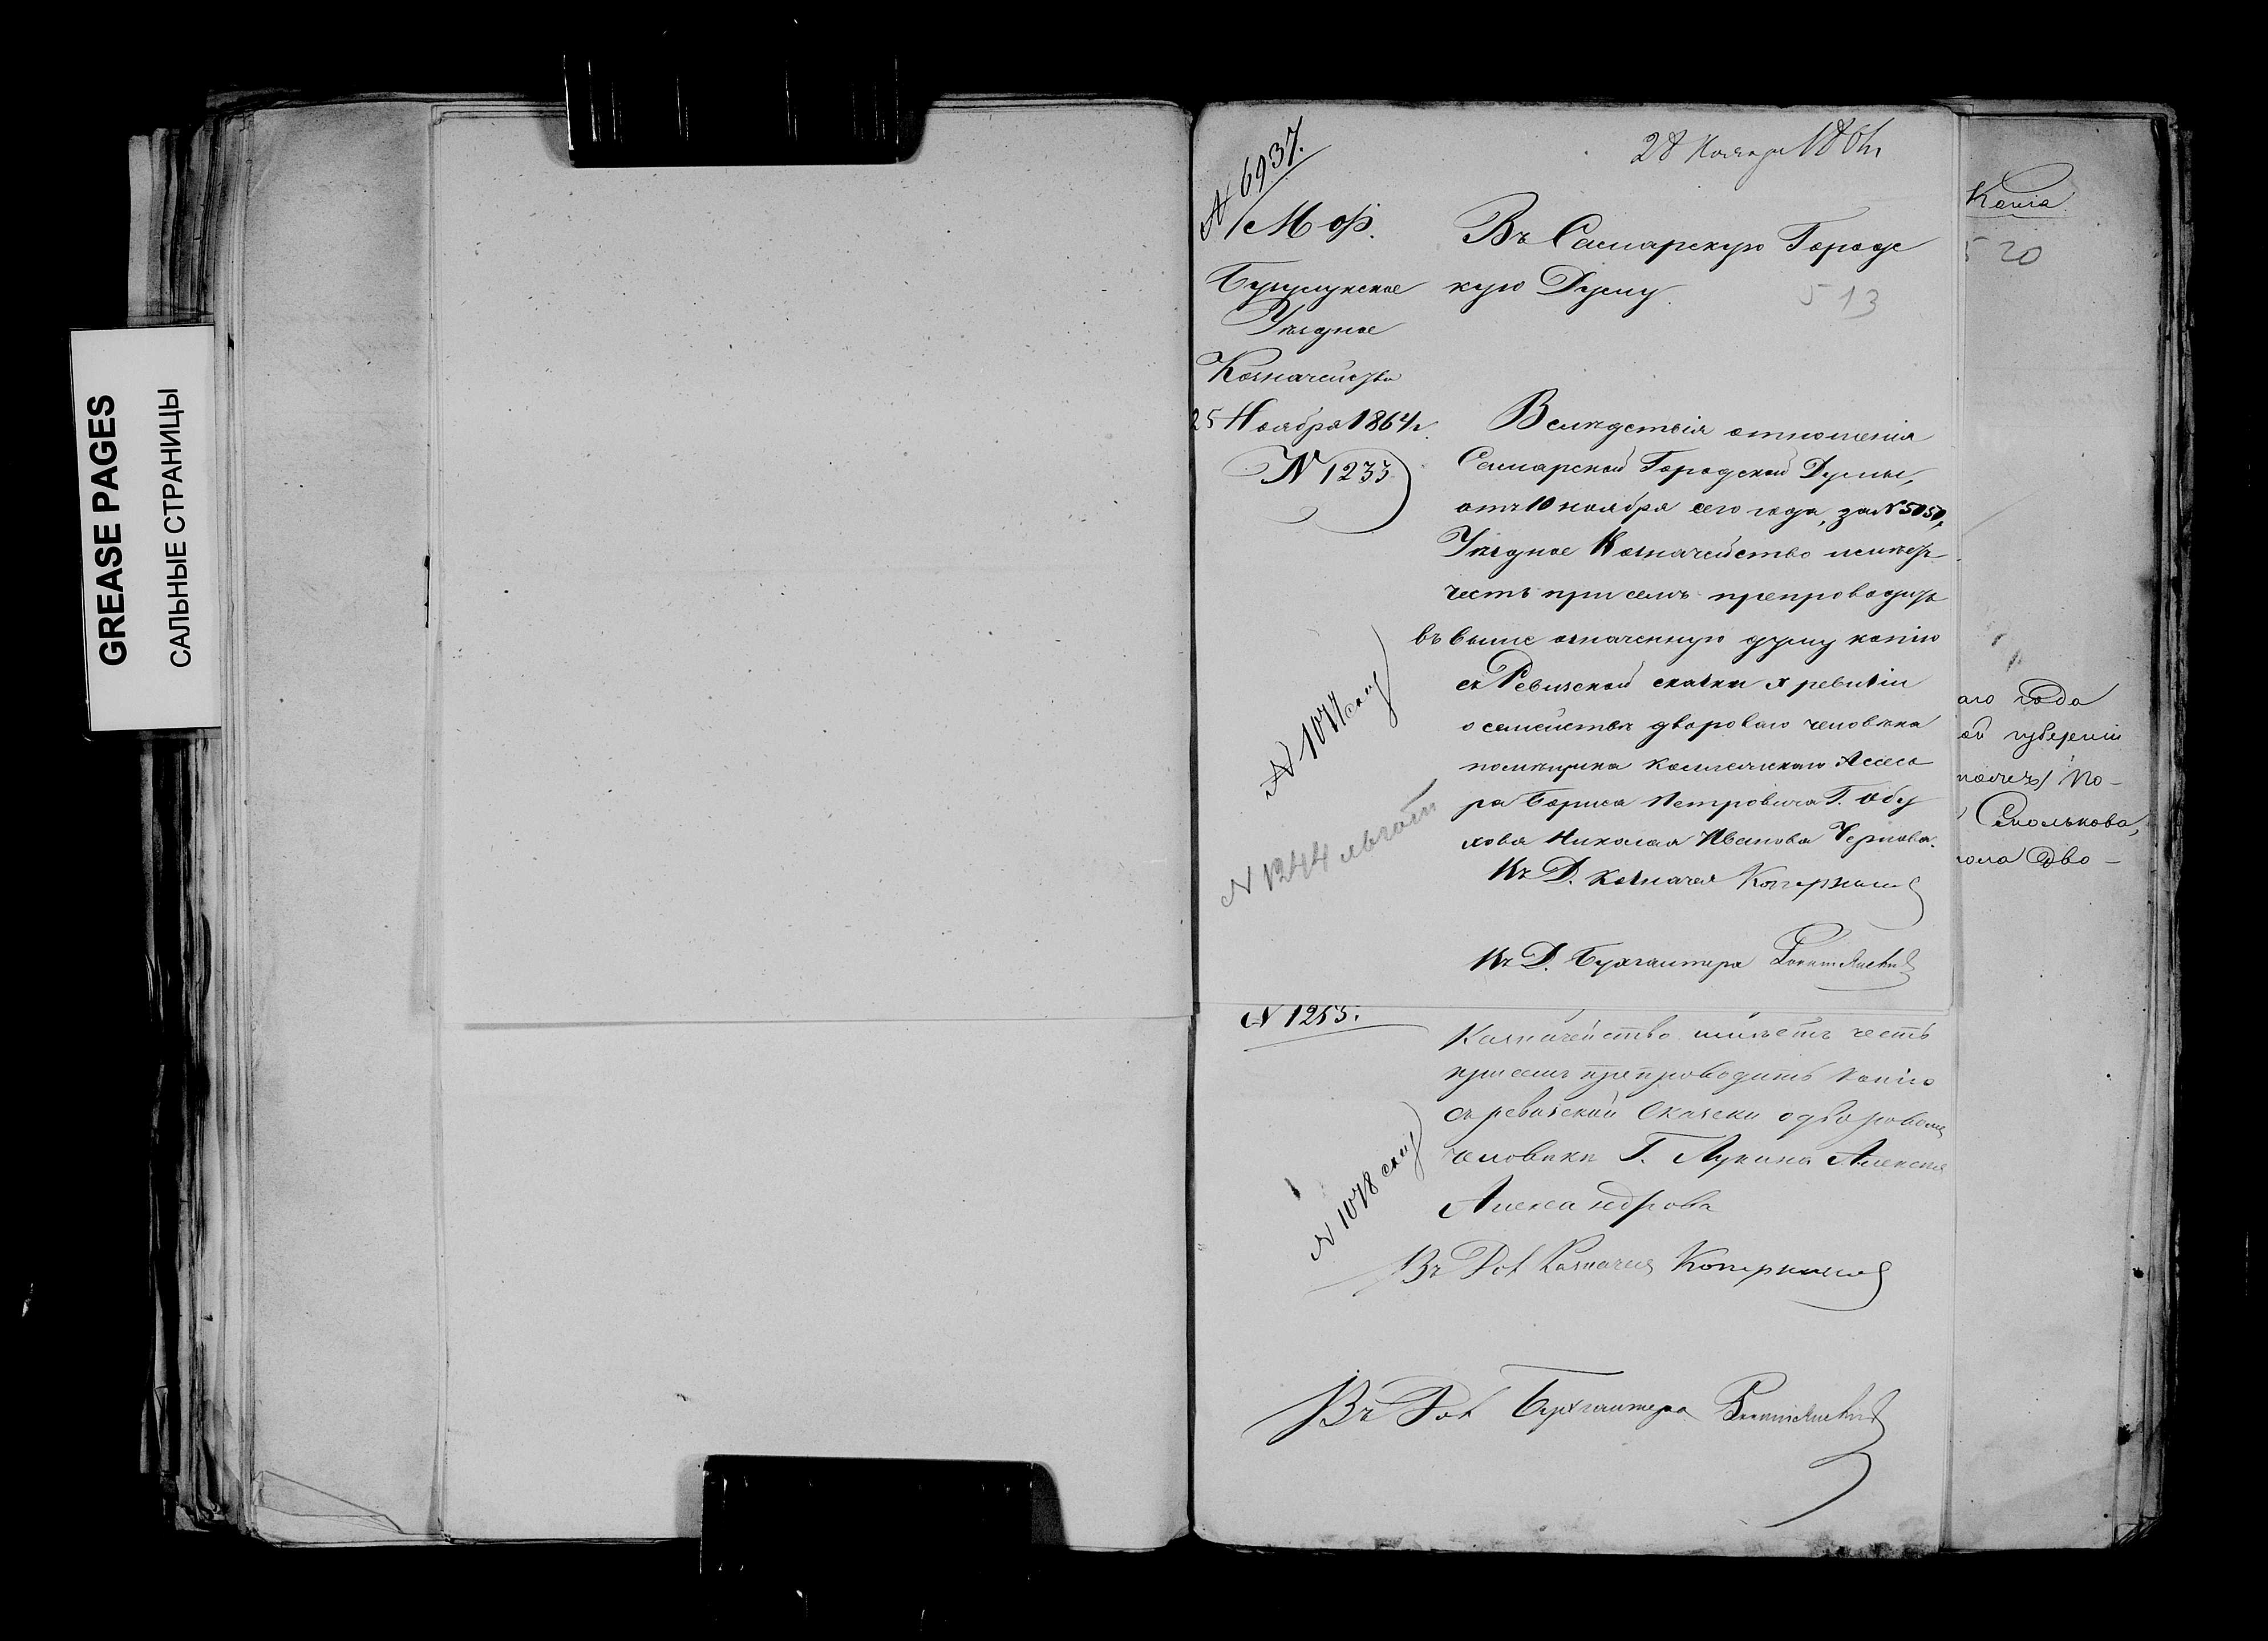 GREASE PAGES
САЛЬНЫЕ СТРАНИЦЫ
№ 6937.
28 Ноября 1864 г
М. Ф.
Бугульминское
Уѣздное
Казначейство
25 Ноября 1864 г.
№ 1233
Въ Самарскую Городс
кую Думу.
513
Вслѣдствіи отношенія
Самарской Городской Думы,
отъ 10 ноября сего года, за № 5050,
Уѣздное Казначейство имѣетъ
честь при семъ препроводить
въ выше означенную думу копію
съ Ревизской сказки X ревизіи
о семействѣ двороваго человѣка
помѣщика Коллежскаго Асесо
ра Бориса Петровича Г. Обу
хова Николая Иванова Чернова.
Въ Д. Казначея
Въ Д. Бухгалтера
№ 1077
№ 1244
№ 1253.
Казначейство имѣетъ честь
при семъ препроводить копію
съ ревизской сказки о дворовомъ
человѣкѣ Г. Лукина Алексѣя
Александрова
№ 1078
Въ Дол Казначея
Въ Дол Бухгалтера
Копія
520
аго года
ой губерніи
По-
Смолькова,
Дво-